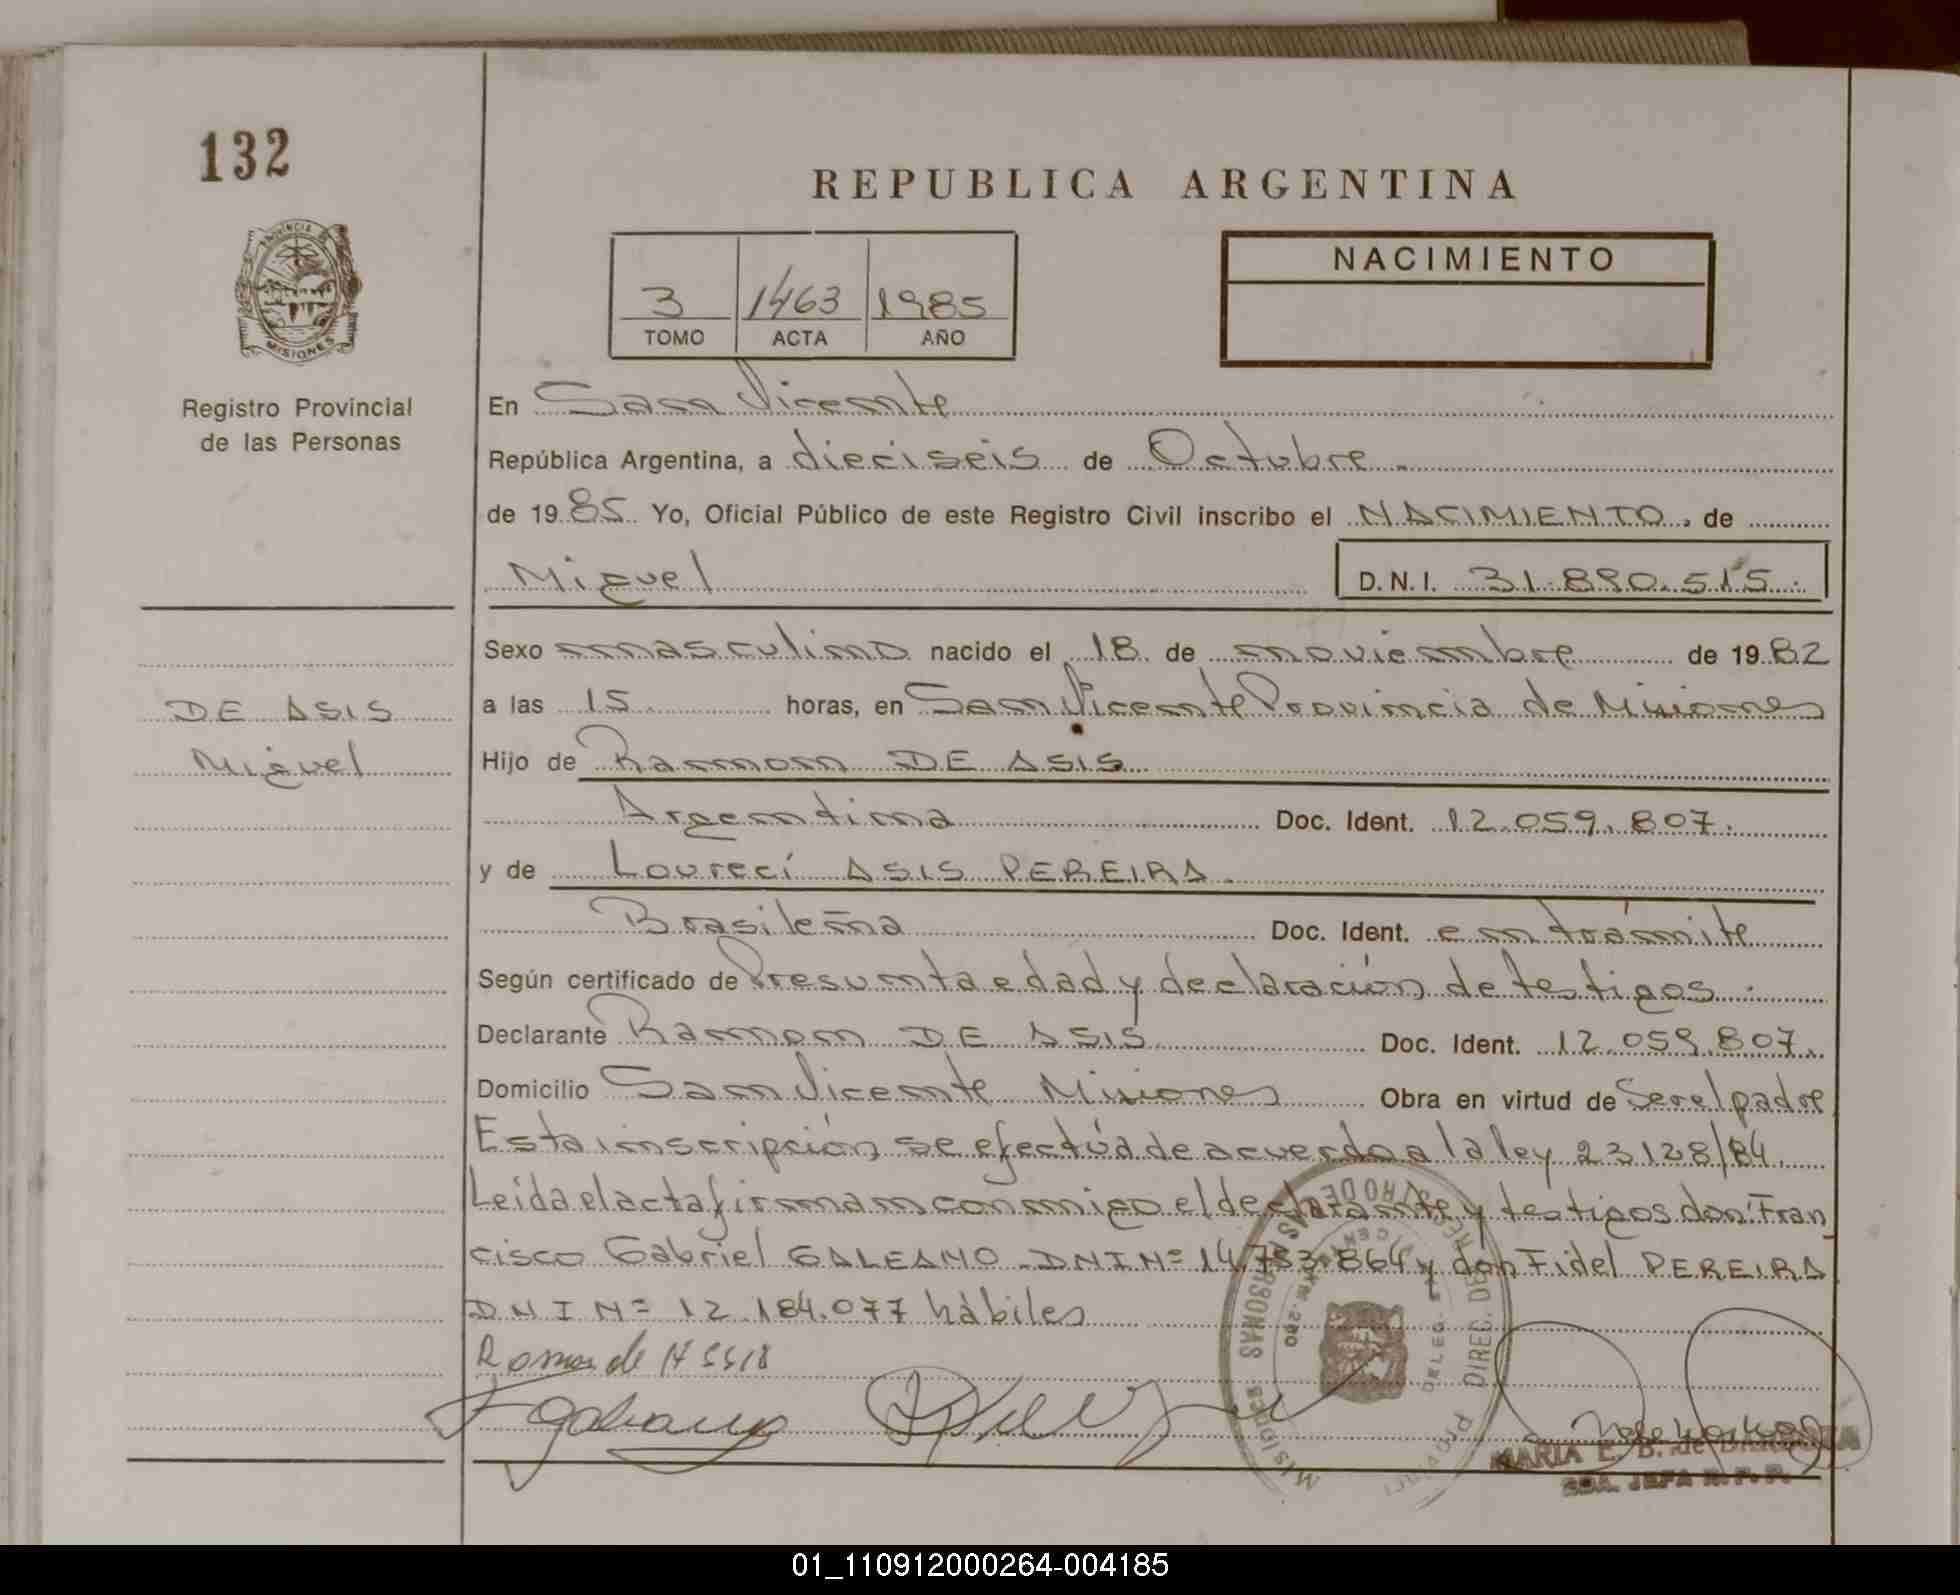 132
REPUBLICA ARGENTINA
PROVINCIA DE
MISIONES
Registro Provincial
de las Personas
3 1463 1985
TOMO ACTA AÑO
NACIMIENTO
En San Vicente
República Argentina, a dieciseis de Octubre.
de 1985. Yo, Oficial Público de este Registro Civil inscribo el NACIMIENTO. de
Miguel D.N.I. 31.890.515.
Sexo masculino nacido el 18 de noviembre de 1982
DE ASIS
Miguel
a las 15 horas, en San Vicente Provincia de Misiones
Hijo de Ramon DE ASIS
Argentina Doc. Ident. 12.059.807.
y de Loureci ASIS PEREIRA.
Brasileña Doc. Ident. en trámite
Según certificado de Presunta edad y declaración de testigos.
Declarante Ramon DE ASIS Doc. Ident. 12.059.807.
Domicilio San Vicente Misiones Obra en virtud de Ser el padre
Esta inscripción se efectúa de acuerdo a la ley 23128/84
Leída el acta firman conmigo el declarante y testigos don Fran
cisco Gabriel GALEANO - DNI Nº 14.783.864 y don Fidel PEREIRA
DNI Nº 12.184.077 hábiles
MARIA E. B. de
JEFA R.P.P.
01_110912000264-004185